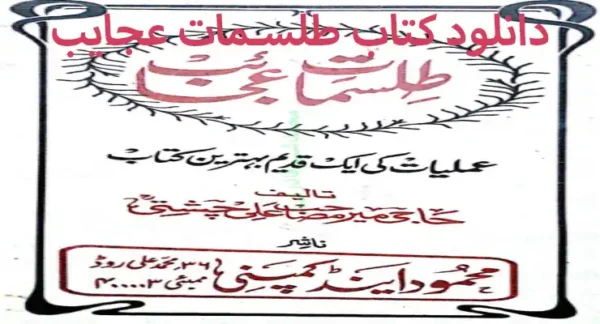 دانلود کتاب طلسمات عجایب
طلسمات عجائب
عملیات کی ایک قدیم بہترین کتاب
تالیف
حاجی میر رمضان علی چشتی
ناشر
محمود اینڈ کمپنی ۳۶، محمد علی روڈ
ممبئی ۴۰۰۰۰۳